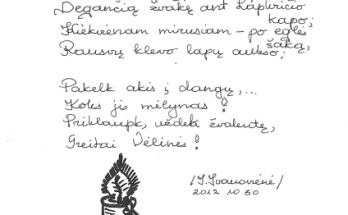 Degančią žvakę ant Lapkričio kapo;
Kiekvienam mirusiam – po eglės šaką,
Rausvų klevo lapų aukso;
Pakelk akis į dangų,...
Koks jis mėlynas!
Priklaupk, uždek žvakutę,
Greitai Vėlinės!
/J. Ivanovienė/
2012 10 30